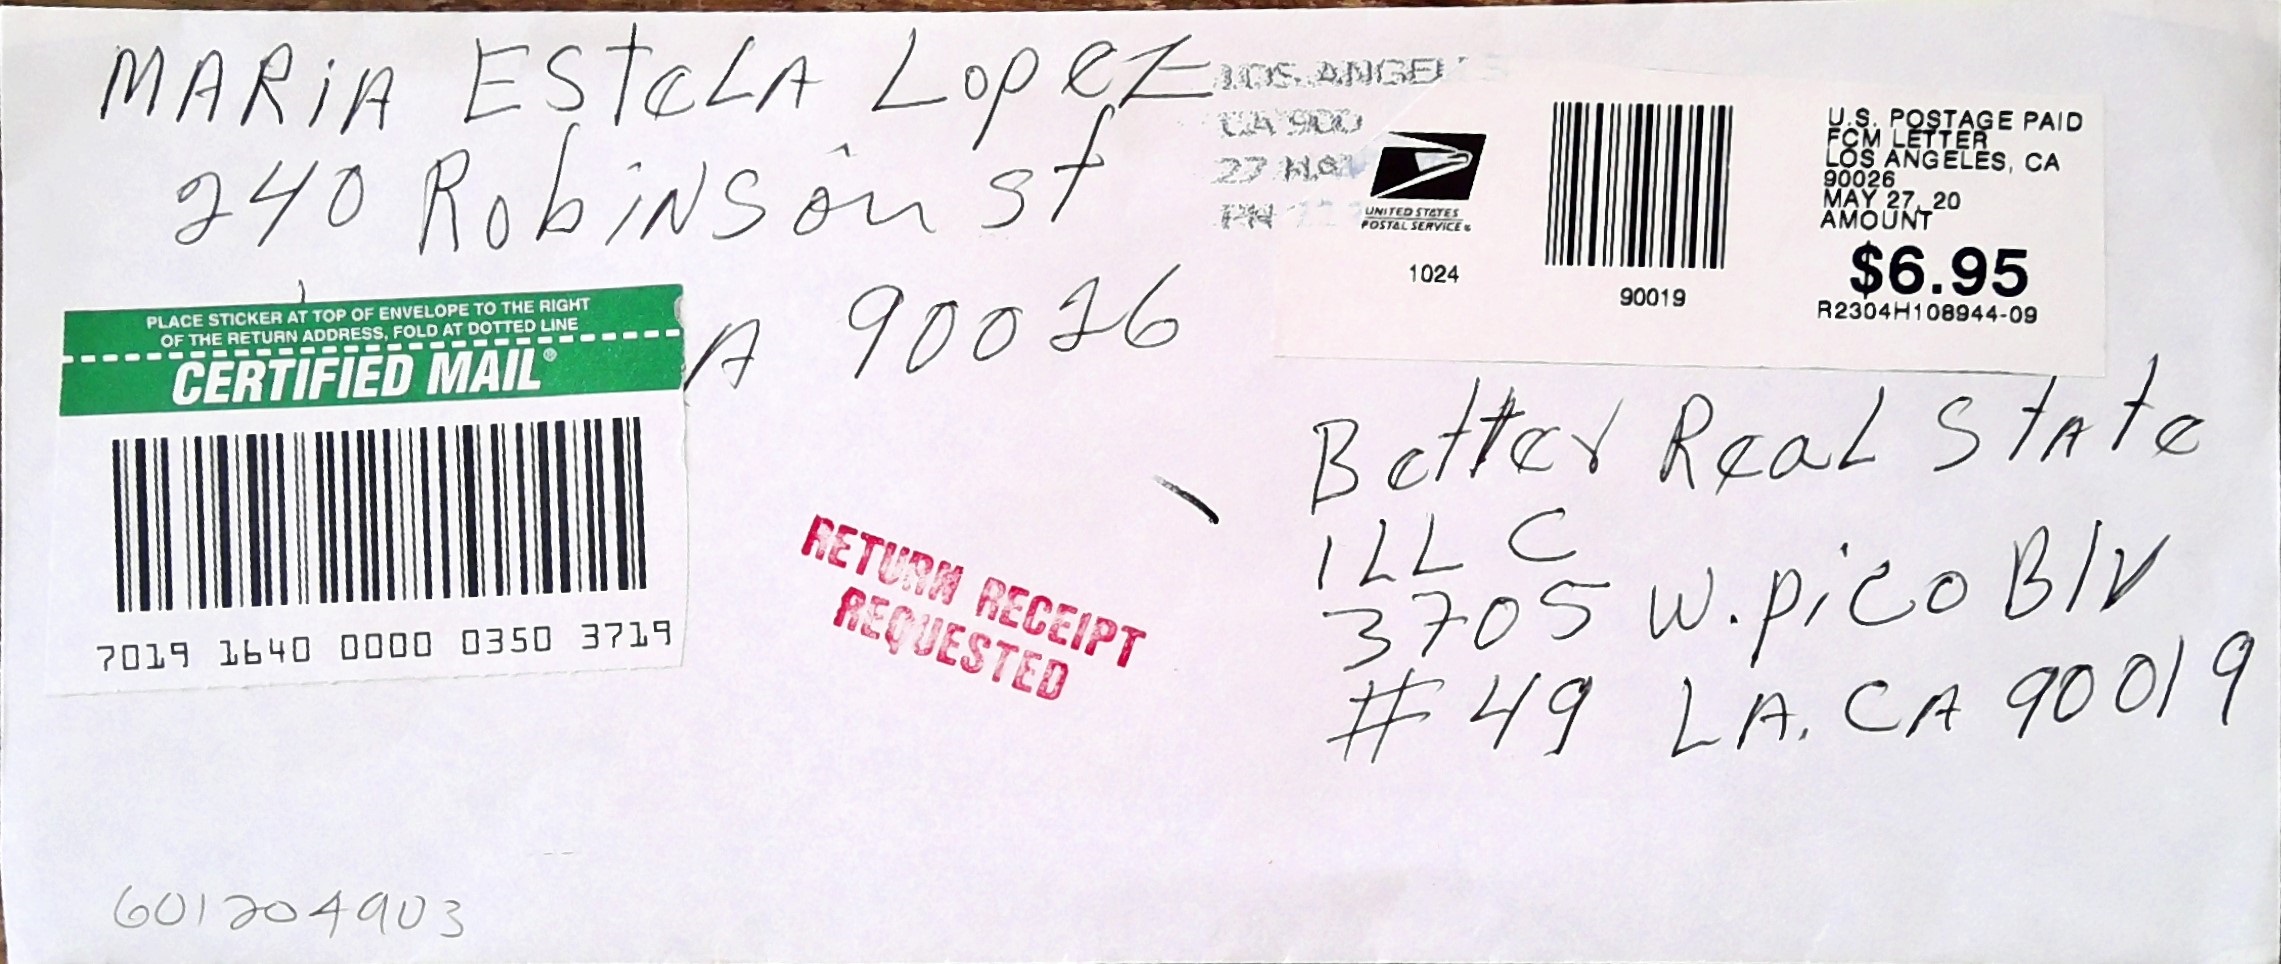 MARiA ESteLA Lopez
240 Robinson st
A 90026
LOS ANGEL
CA 900
27 MAY
PM
UNITED STATES
POSTAL SERVICE®
1024
90019
U.S. POSTAGE PAID
FCM LETTER
LOS ANGELES, CA
90026
MAY 27, 20
AMOUNT
$6.95
R2304H108944-09
PLACE STICKER AT TOP OF ENVELOPE TO THE RIGHT
OF THE RETURN ADDRESS, FOLD AT DOTTED LINE
CERTIFIED MAIL®
7019 1640 0000 0350 3719
RETURN RECEIPT
REQUESTED
Better ReaL State
1LL C
3705 W. pico Blv
# 49 LA. CA 90019
601204903